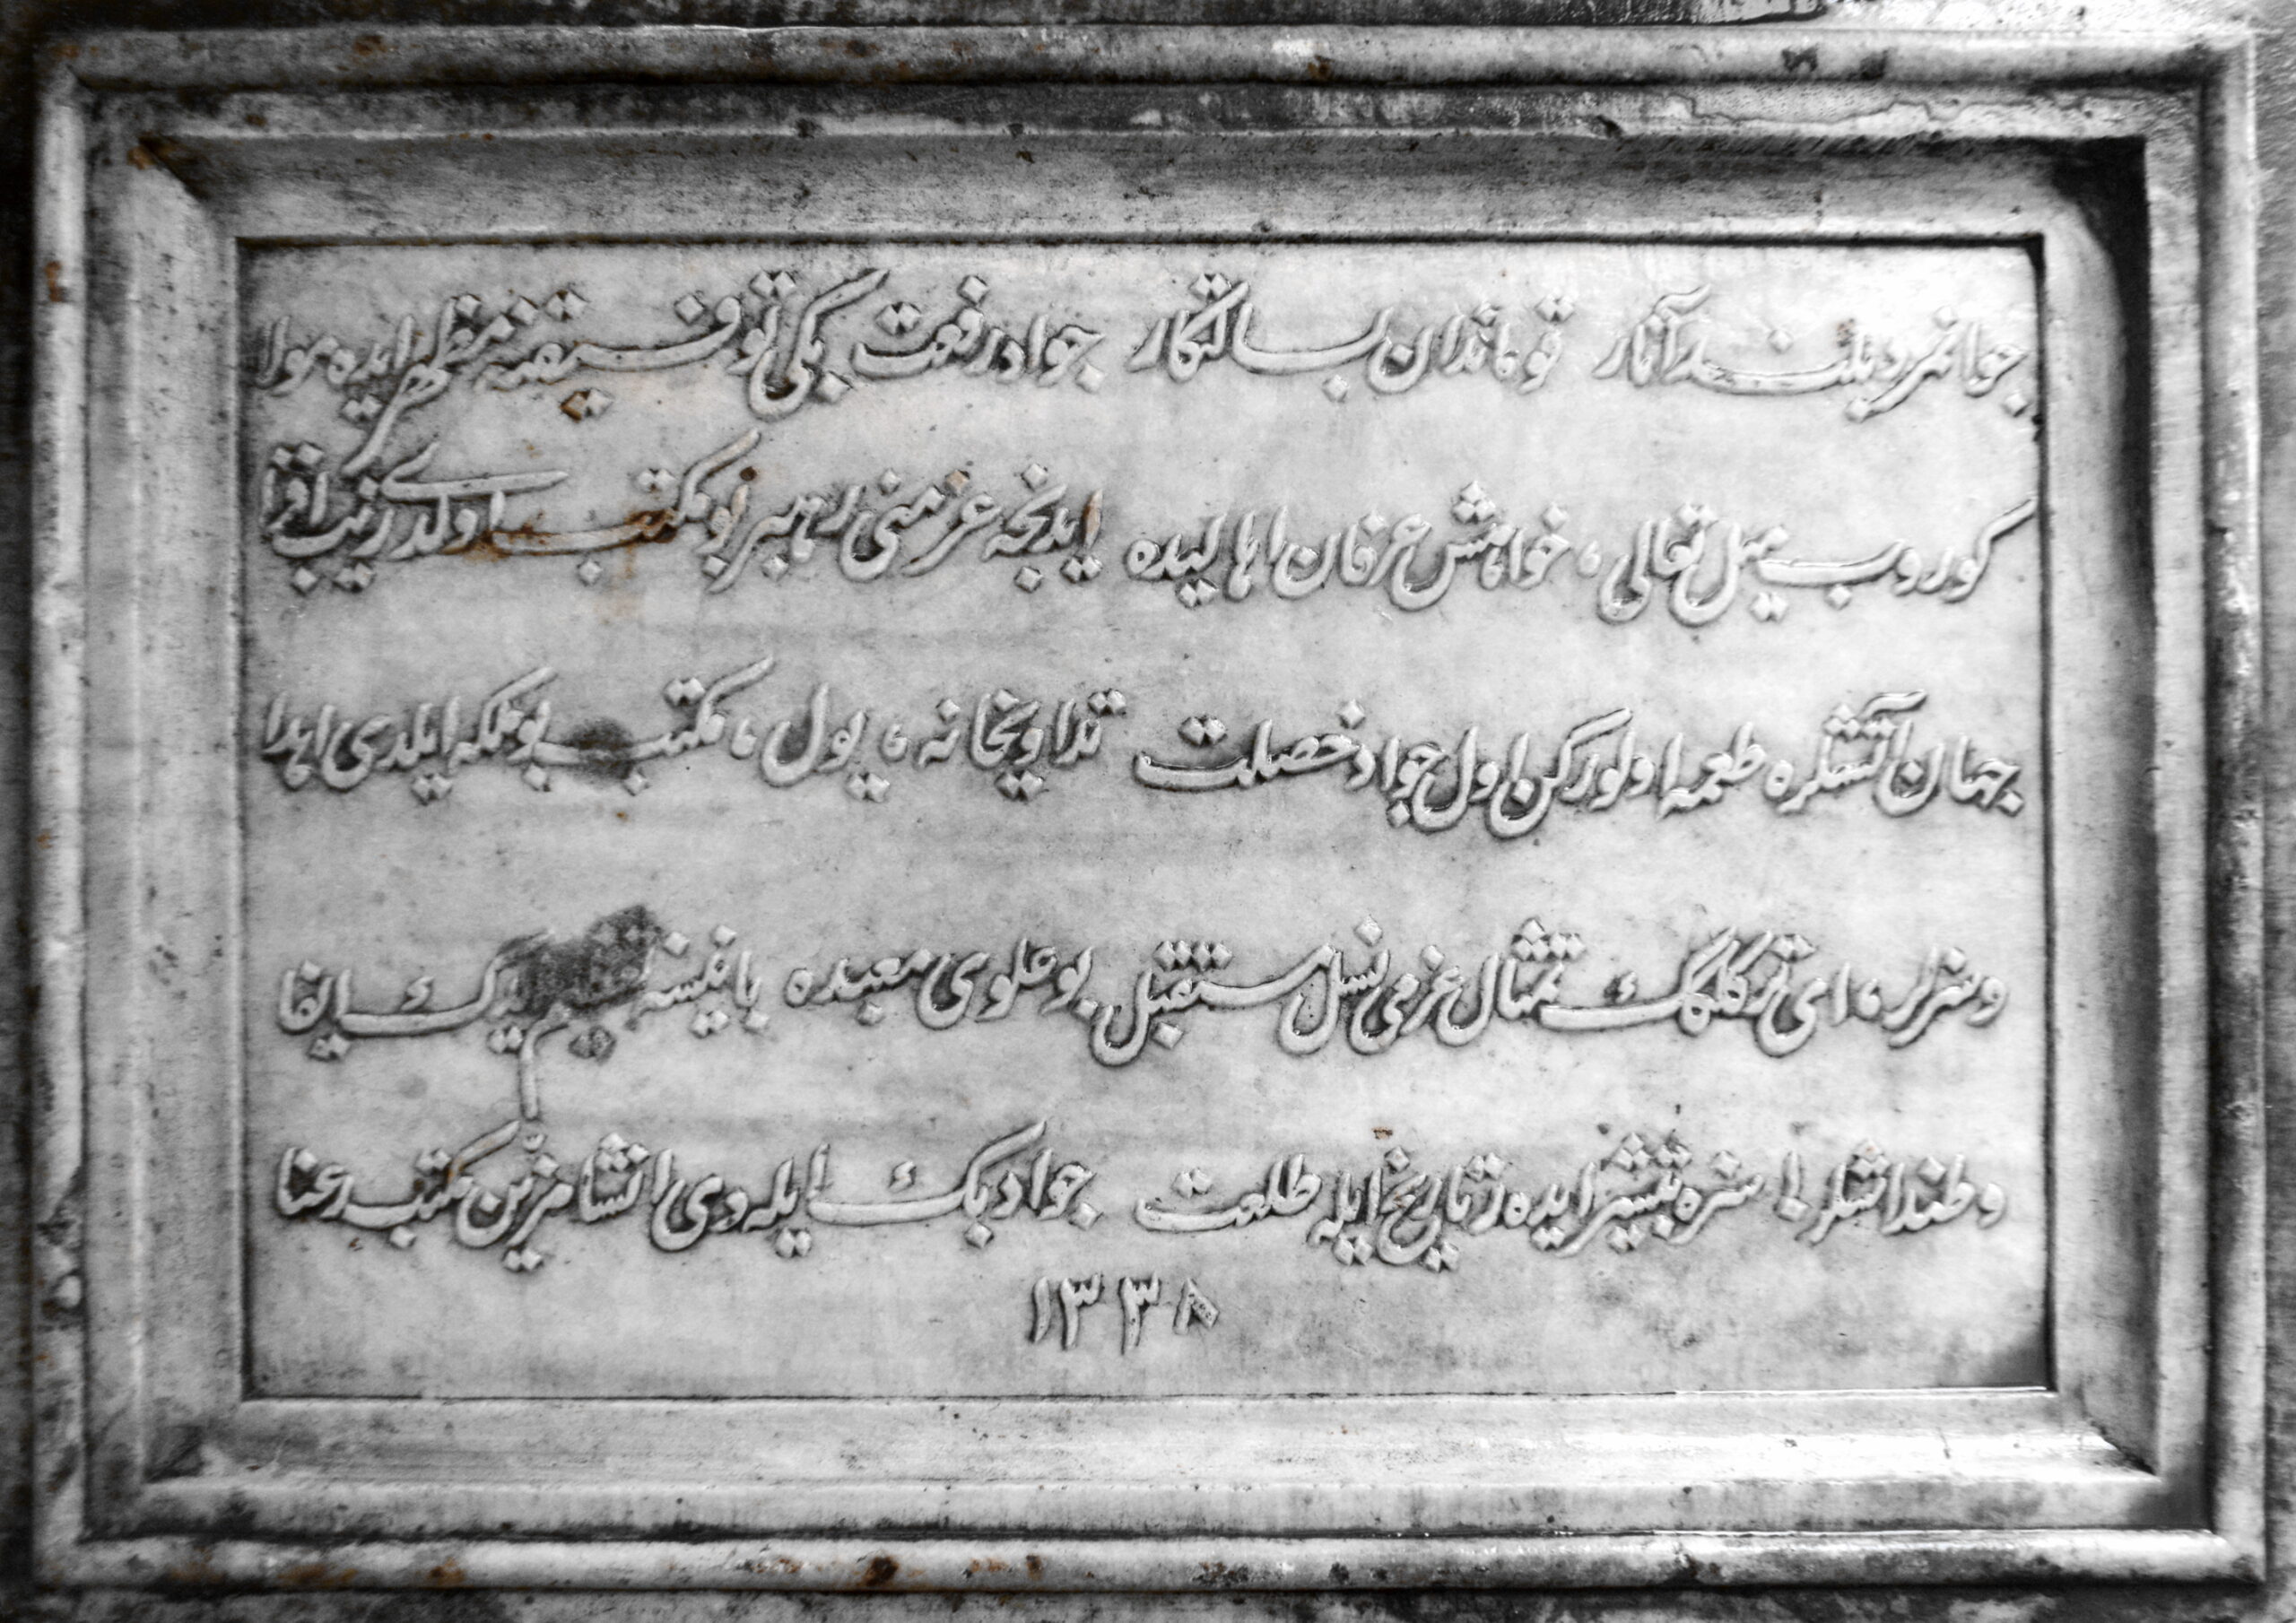 جوانمرد بلند آثار قوماندان بسالتكار جواد رفعت بكی توفيقنه مظهر ايده مولا
كوروب ميل تعالی، خواهش عرفان اهاليده ايدنجه عزمنی رهبر بو مكتب اولدی زيب افزا
جهان آتشلره طعمه اولوركن اول جواد خصلت تداويخانه، يول، مكتب بو ملكه ايلدی اهدا
وسزلر، ای تركلگك تمثال عزمی نسل مستقبل بو علوی معبده ايفا
وطنداشلر! سزه تبشير ايده ر تاريخ ايله طلعت جواد بك ايله دی انشا مزين مكتب رعنا
١٣٣٨